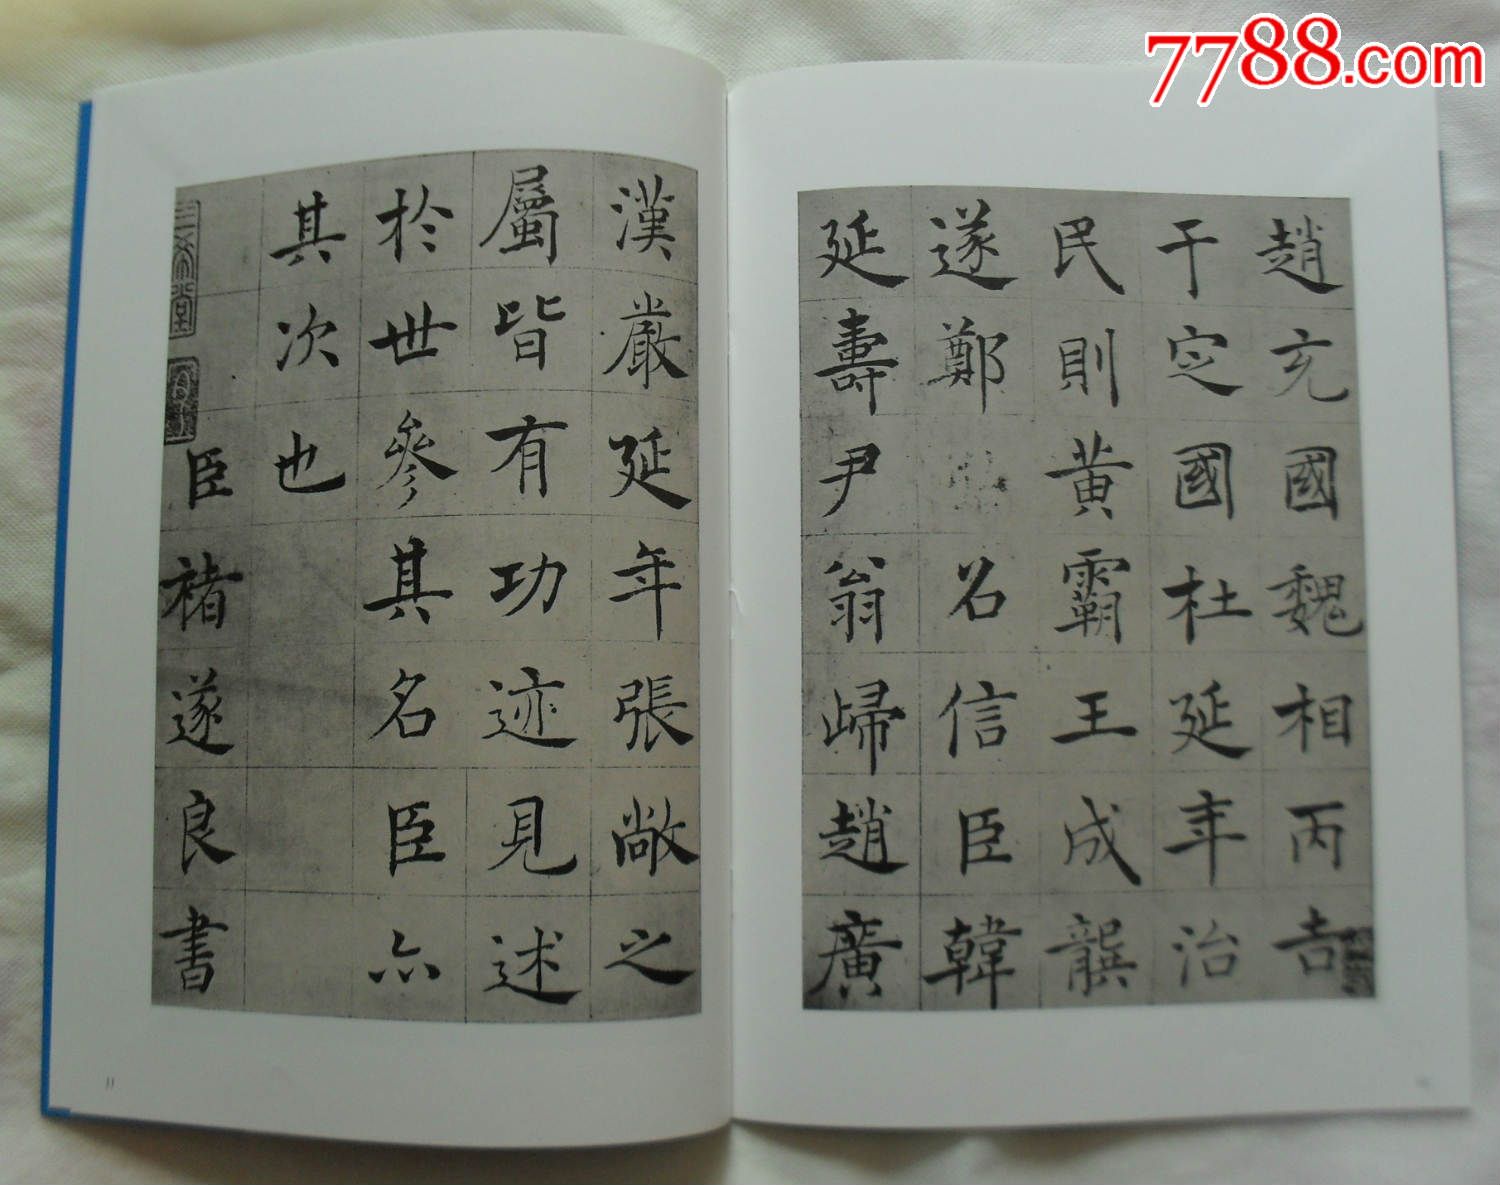 7788.com
趙充國魏相丙吉
于定國杜延年治
民則黃霸王成龔
遂鄭名信臣韓
延壽尹翁歸趙廣
漢嚴延年張敞之
屬皆有功迹見述
於世參其名臣亦
其次也
臣褚遂良書
11